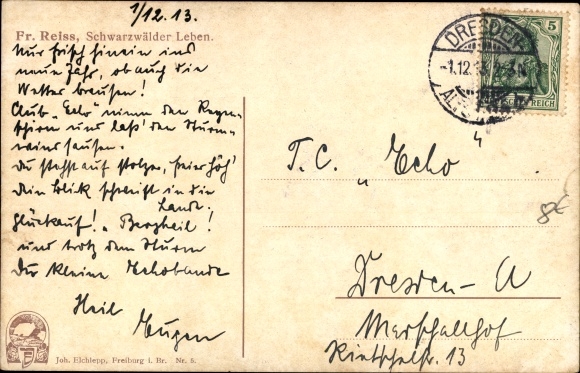 1/12.13.
Fr. Reiss, Schwarzwälder Leben.
Nur frisch hinein ins
neue Jahr, ob auch die
Wetter brausen!
Club "Echo" nimm den Regen-
schirm und laß' den Sturm-
wind sausen.
Du stehst auf stolzer, freier Höh'
Dein Blick schweift in die
Lande.
Glückauf! "Bergheil!
und trotz dem Sturm
Die kleine Echobande
Heil
Eugen
Joh. Elchlepp, Freiburg i. Br. Nr. 8.
DRESDEN
-1.12.13
ALTST.
5
REICH
4
T. C. "Echo
8€
Dresden-A
Marschallhof
Rietschelstr. 13